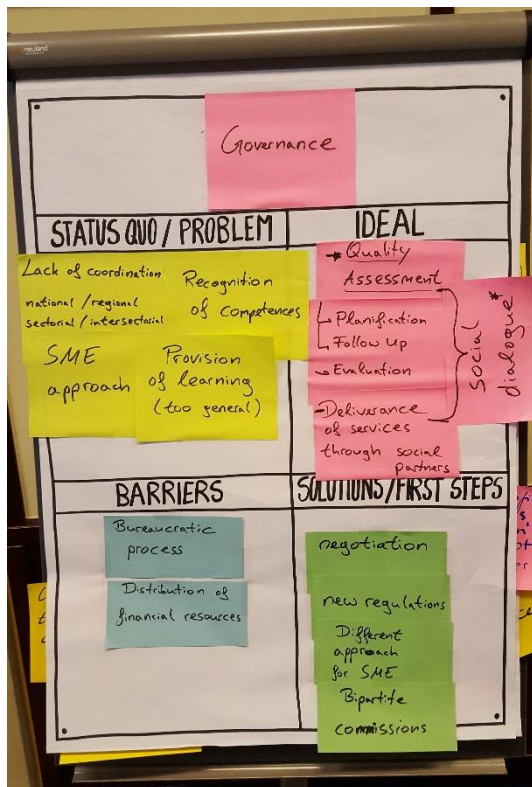 neuland
Governance
STATUS QUO / PROBLEM
Lack of coordination
national / regional
sectorial / intersectorial
Recognition
of competences
SME
approach
Provision
of learning
(too general)
IDEAL
Quality
Assessment
Planification
Follow up
Evaluation
Deliverance
of services
through social
partners
social
dialogue*
BARRIERS
Bureaucratic
process
Distribution of
financial resources
SOLUTIONS/FIRST STEPS
negotiation
new regulations
Different
approach
for SME
Bipartite
commissions